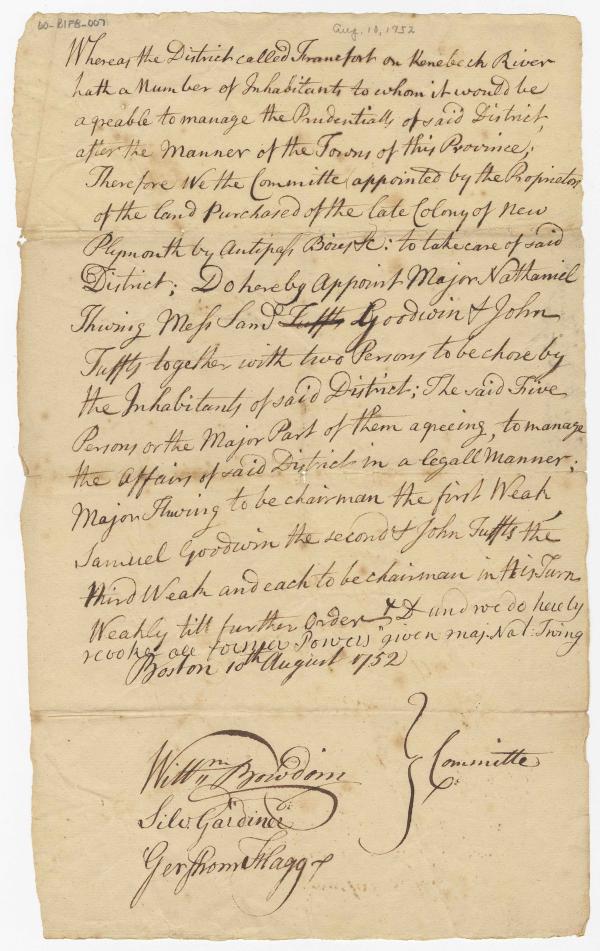 60-B1F8-007
Aug. 10, 1752
Whereas the District called Francfort on Kenebeck River
hath a Number of Inhabitants to whom it would be
agreable to manage the Prudentialls of said District,
after the Manner of the Towns of this Province;
Therefore We the Committe appointed by the Proprietors
of the land Purchased of the late Colony of New
Plymouth by Antipass Boies &c: to take care of said
District; Do hereby Appoint Major Nathaniel
Thwing Mess Saml Tuffts Goodwin & John
Tuffts together with two Persons to be chose by
the Inhabitants of said District; The said Five
Persons or the Major Part of them agreeing, to manage
the Affairs of said District in a legall Manner;
Major Thwing to be chairman the first Weak
Samuel Goodwin the second & John Tuffts the
third Weak and each to be chairman in His Turn
Weakly till further Order and we do hereby
revoke all former Powers given maj. Nat: Twing
Boston 10th August 1752
Willm Bowdoin
Silv. Gardiner
Gershom Flagg
Committe